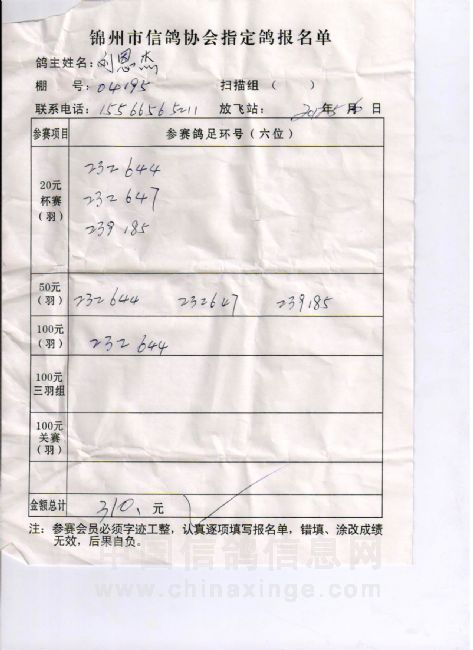 锦州市信鸽协会指定鸽报名单
鸽主姓名: 刘恩杰
棚 号: 04195 扫描组 ( )
联系电话: 15566565211 放飞站: 年 月 日
参赛项目 参赛鸽足环号(六位)
20元
杯赛
(羽)
232644
232647
239185
50元
(羽)
232644 232647 239185
100元
(羽)
232644
100元
三羽组
100元
关赛
(羽)
金额总计 310. 元
注: 参赛会员必须字迹工整, 认真逐项填写报名单, 错填、涂改成绩
无效, 后果自负。
中国信鸽信息网
www.chinaxinge.com